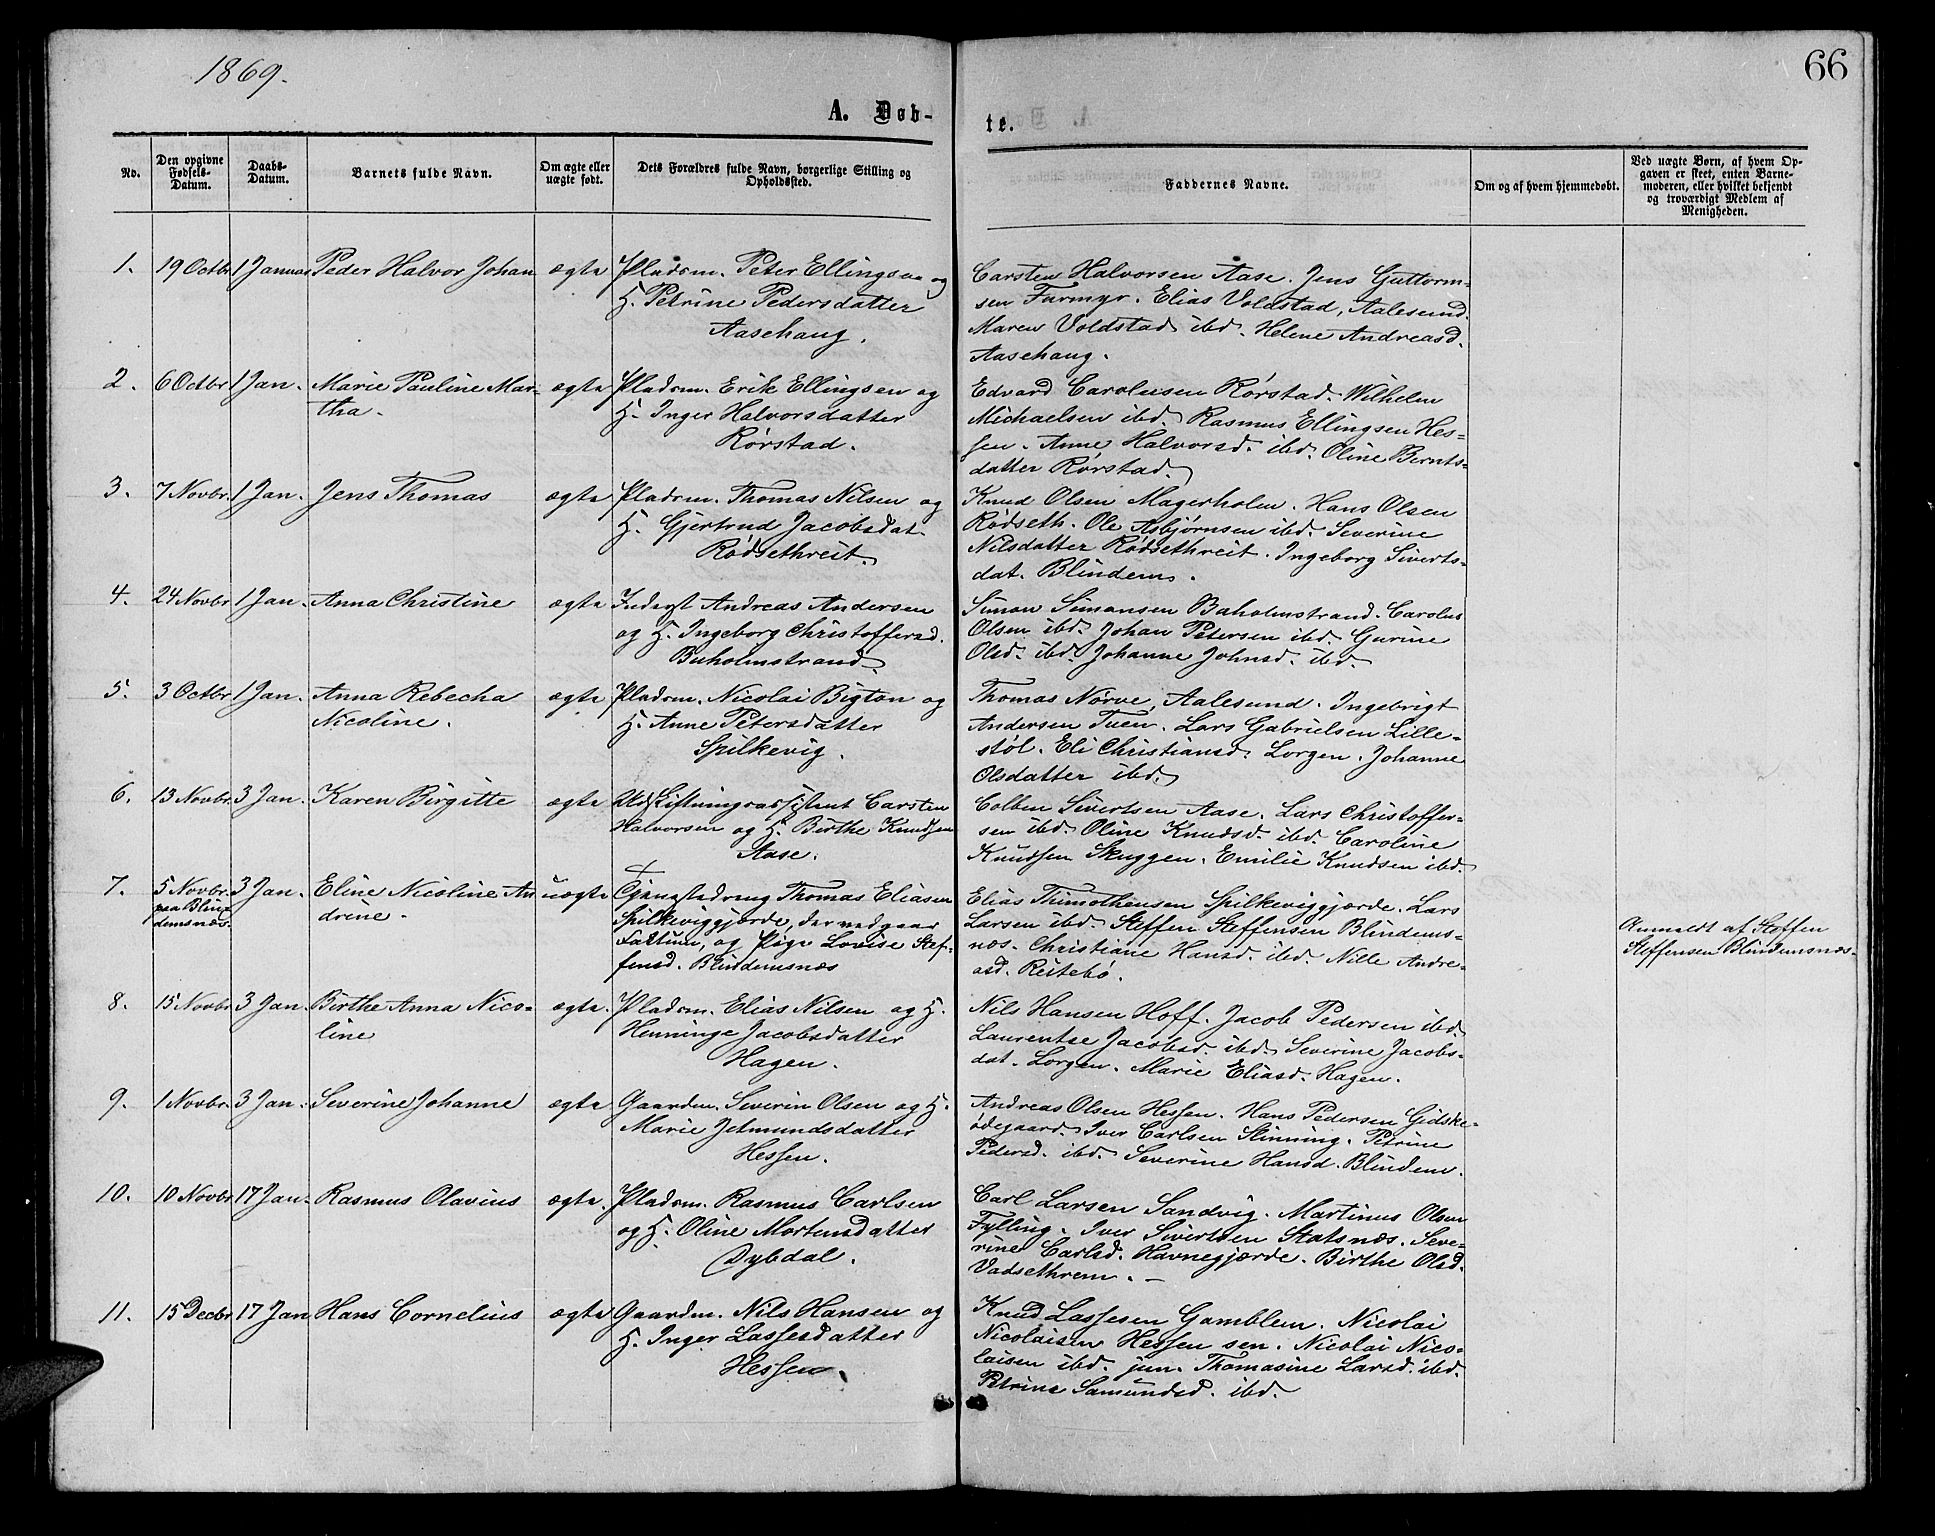 1869.
66
A. Døb-
te.
No.
Den opgivne
Fødsels-
Datum.
Daabs-
Datum.
Barnets fulde Navn.
Om ægte eller
uægte født.
Dets Forældres fulde Navn, borgerlige Stilling og
Opholdssted.
Faddernes Navne.
Om og af hvem hjemmedøbt.
Ved uægte Børn, af hvem Op-
gaven er skeet, enten Barne-
moderen, eller hvilket bekjendt
og troværdigt Medlem af
Menigheden.
1. 19 Octbr 1 Januar Peder Halvor Johan ægte Pladsm. Peter Ellingsen og
H. Petrine Pedersdatter
Aasehaug.
Carsten Halvorsen Aase. Jens Guttorm-
sen Furmyr. Elias Voldstad, Aalesund.
Maren Voldstad ibd. Helene Andreasd.
Aasehaug.
2. 6 Octbr 1 Jan. Marie Pauline Mar-
tha. ægte Pladsm. Erik Ellingsen og
H. Inger Halvorsdatter
Rørstad.
Edvard Carolusen Rørstad. Wilhelm
Michaelsen ibd. Rasmus Ellingsen Hes-
sen. Anne Halvorsd. ibd. Oline Bernts-
datter Rørstad.
3. 7 Novbr. 1 Jan. Jens Thomas ægte Pladsm. Thomas Nilsen og
H. Gjertrud Jacobsdat.
Rødsethreit.
Knud Olsen Magerholm. Hans Olsen
Rødseth. Ole Asbjørnsen ibd. Severine
Nilsdatter Rødsethreit. Ingeborg Siverts-
dat. Blindem.
4. 24 Novbr 1 Jan. Anna Christine ægte Inderst Andreas Andersen
og H. Ingeborg Christoffersd.
Buholmstrand.
Simon Simonsen Buholmstrand. Carolus
Olsen ibd. Johan Petersen ibd. Gurine
Olsd. ibd. Johanne Johnsd. ibd.
5. 3 Octbr 1 Jan. Anna Rebecha
Nicoline. ægte Pladsm. Nicolai Bigton og
H. Anne Petersdatter
Spilkevig.
Thomas Nørve, Aalesund. Ingebrigt
Andersen Tuen. Lars Gabrielsen Lille-
støl. Eli Christiansd. Lorgen. Johanne
Olsdatter ibd.
6. 13 Novbr. 3 Jan. Karen Birgitte ægte Udskiftningsassistent Carsten
Halvorsen og H. Birthe Knudsen
Aase.
Colben Sivertsen Aase. Lars Christoffer-
sen ibd. Oline Knudsd. ibd. Caroline
Knudsen Skuggen. Emilie Knudsen ibd.
7. 5 Novbr.
paa Blin-
demsnæs. 3 Jan. Eline Nicoline An
drine. uægte Tjenestedreng Thomas Eliasen
Spilkeviggjerde, der vedgaar
Factum, og Pige Lovise Stef-
fensd. Blindemsnæs
Elias Thimotheusen Spilkeviggjærde. Lars
Larsen ibd. Steffen Steffensen Blindems-
næs. Christiane Hansd. ibd. Nille Andre-
asd. Reitebø.
Anmeldt af Steffen
Steffensen Blindemsnæs.
8. 15 Novbr 3 Jan. Birthe Anna Nico-
line ægte. Pladsm. Elias Nilsen og H.
Henninge Jacobsdatter
Hagen.
Nils Hansen Hoff. Jacob Pedersen ibd.
Laurentse Jacobsd. ibd. Severine Jacobs-
dat. Lorgen. Marie Eliasd. Hagen.
9. 1 Novbr. 3 Jan. Severine Johanne ægte Gaardm. Severin Olsen og H.
Marie Jetmundsdatter
Hessen.
Andreas Olsen Hessen. Hans Pedersen Gidske-
ødegaard. Iver Carlsen Slinning. Petrine
Pedersd. ibd. Severine Hansd. Blindem.
10. 10 Novbr. 17 Jan. Rasmus Olavius ægte. Pladsm. Rasmus Carlsen
og H. Oline Mortensdatter
Dybdal.
Carl Larsen Sandvig. Martinus Olsen
Fylling. Iver Sivertsen Slatsnæs. Seve-
rine Carlsd. Havnegjærde. Birthe Olsd.
Vadsethrem. -
11. 15 Decbr 17 Jan Hans Cornelius ægte Gaardm. Nils Hansen og
H. Inger Lassesdatter
Hessen.
Knud Lassesen Gamblem. Nicolai
Nicolaisen Hessen sen. Nicolai Nico-
laisen ibd. jun. Thomasine Larsd. ibd.
Petrine Samundsd. ibd.